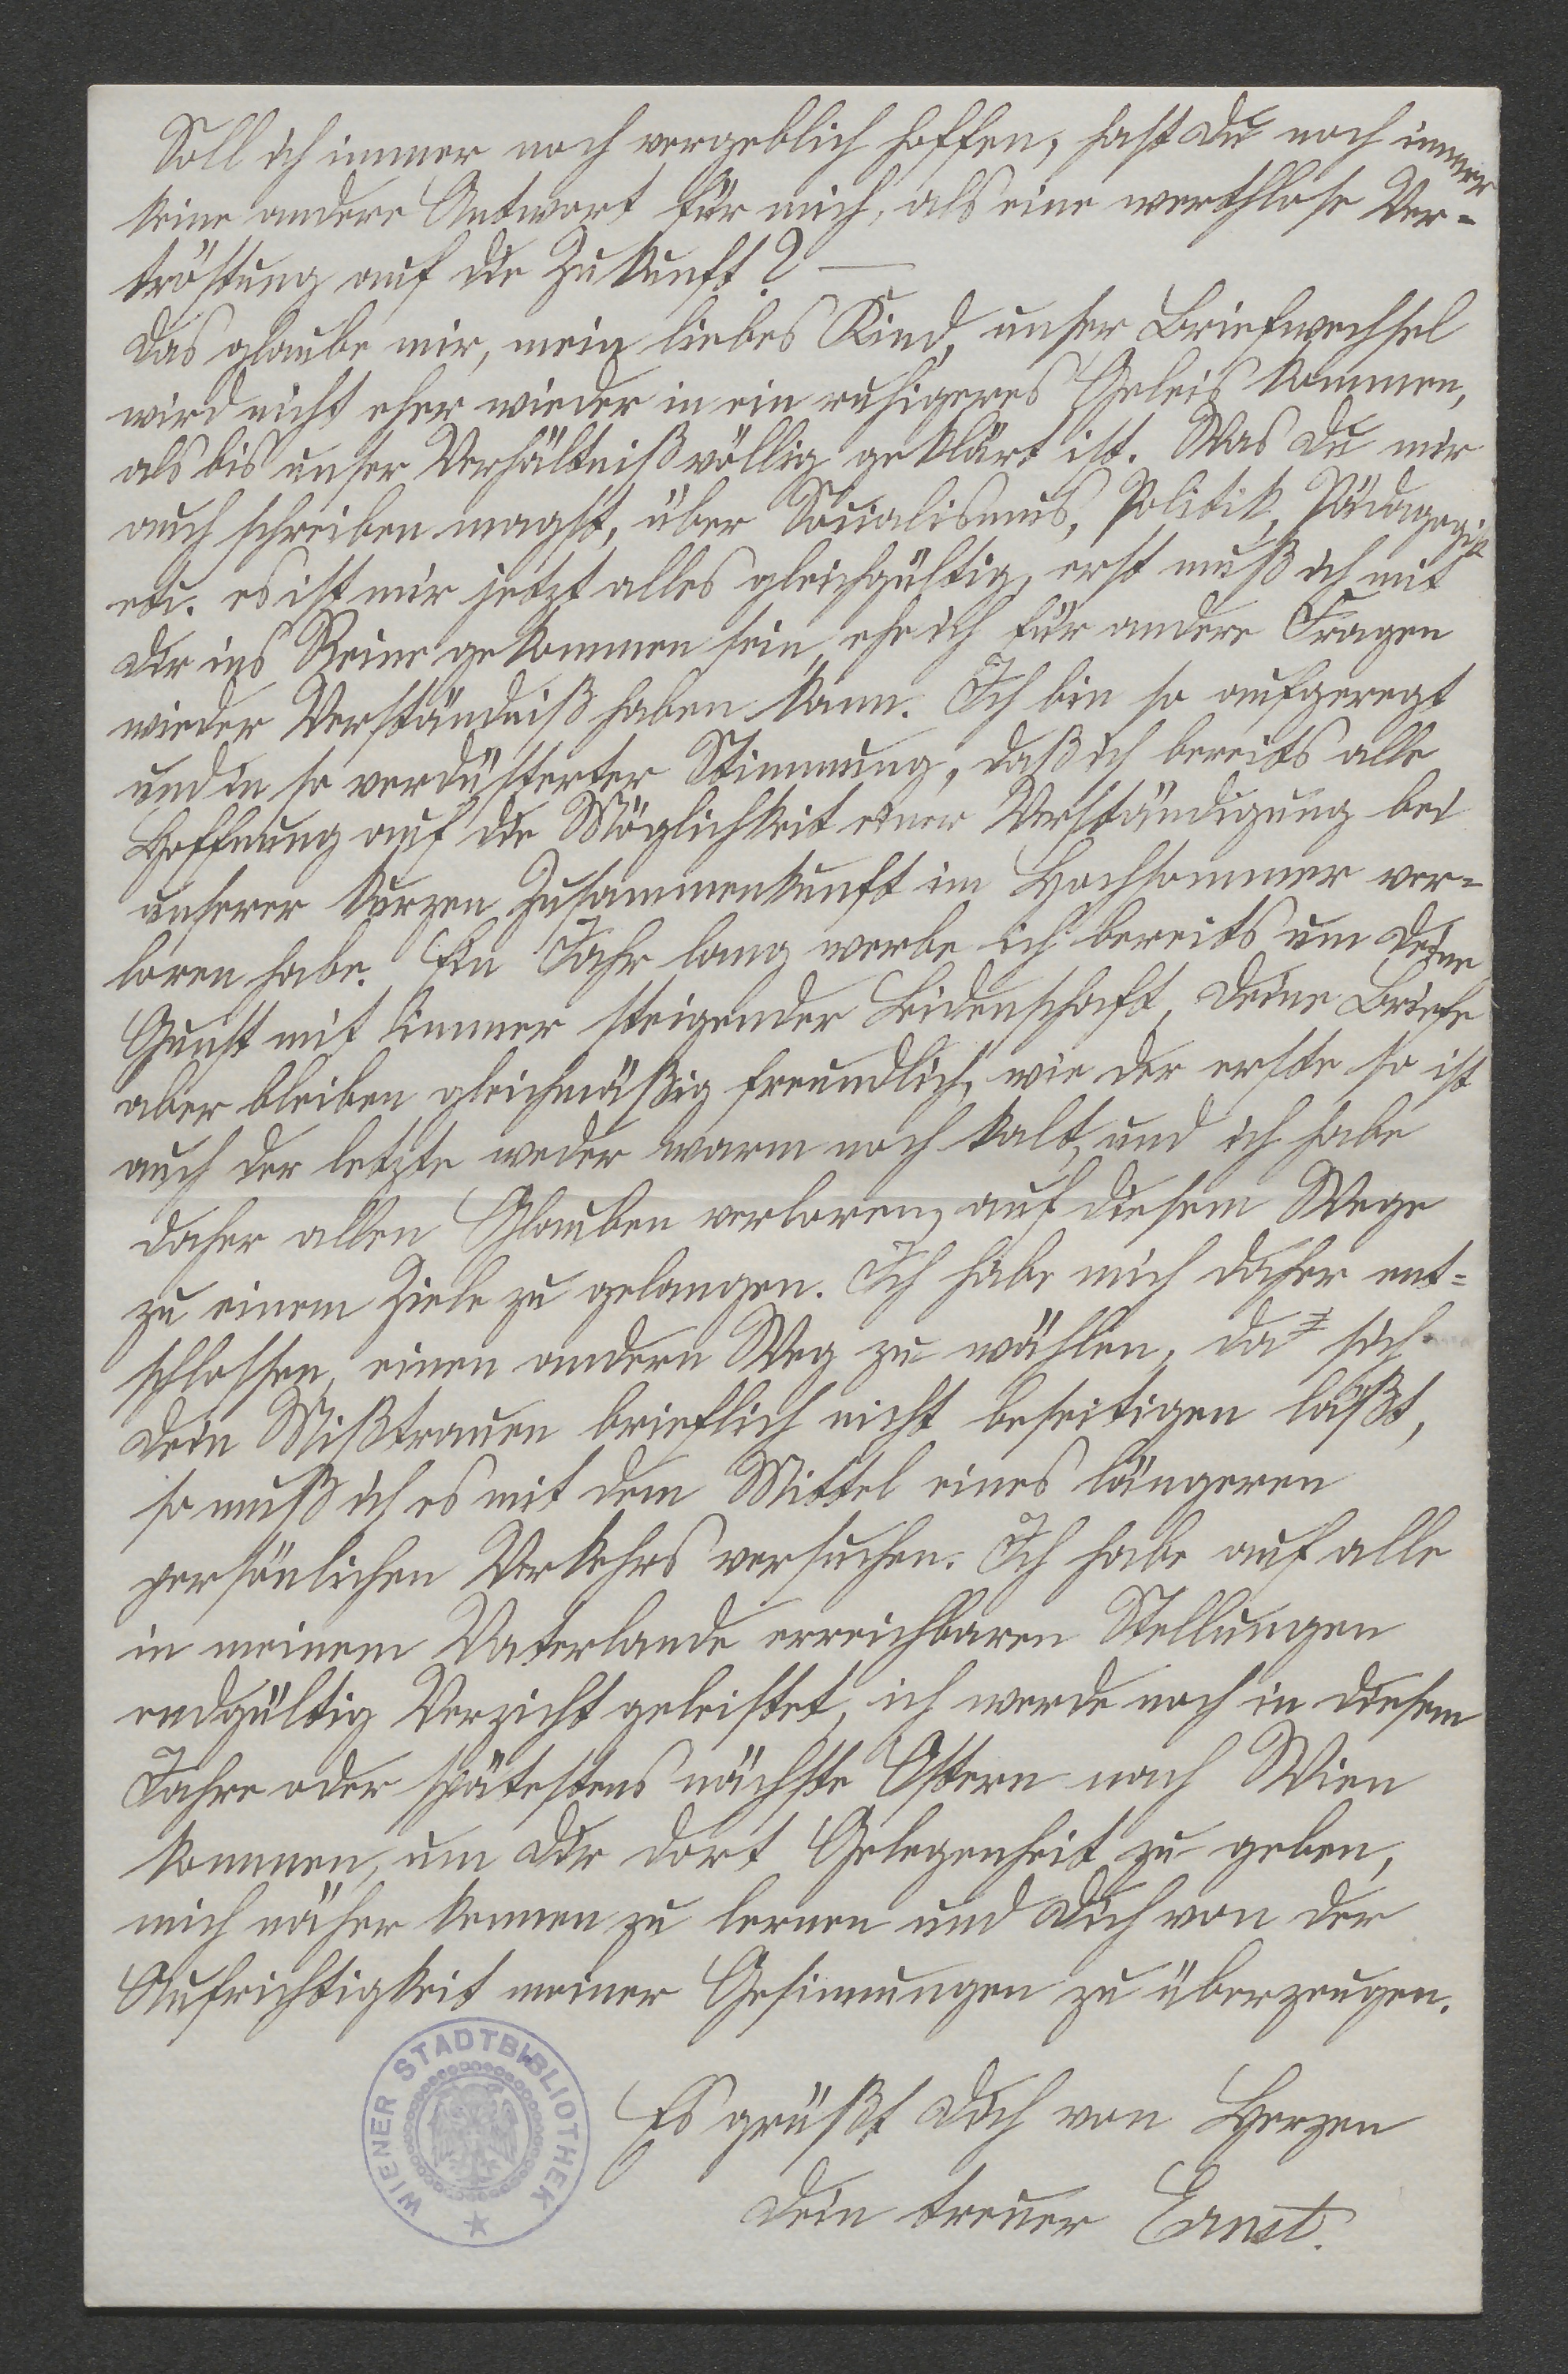 Soll ich immer noch vergeblich hoffen, hast Du noch immer
keine andere Antwort für mich, als eine werthlose Ver-
tröstung auf die Zukunft? —
Das glaube mir, mein liebes Kind, unser Briefwechsel
wird nicht eher wieder in ein ruhigeres Geleis kommen,
als bis unser Verhältniß völlig geklärt ist. Was Du mir
auch schreiben magst, über Socialismus, Politik, Pädagogik
etc. es ist mir jetzt alles gleichgültig, erst muß ich mit
Dir ins Reine gekommen sein, ehe ich für andere Fragen
wieder Verständniß haben kann. Ich bin so aufgeregt
und in so verdüsterter Stimmung, daß ich bereits alle
Hoffnung auf die Möglichkeit einer Verständigung bei
unserer kurzen Zusammenkunft im Hochsommer ver-
loren habe. Ein Jahr lang werbe ich bereits um Deine
Gunst mit immer steigender Leidenschaft, Deine Briefe
aber bleiben gleichmäßig freundlich, wie der erste so ist
auch der letzte weder warm noch kalt, und ich habe
daher allen Glauben verloren, auf diesem Wege
zu einem Ziele zu gelangen. Ich habe mich daher ent-
schlossen, einen andern Weg zu wählen, da sich
Dein Mißtrauen brieflich nicht beseitigen läßt,
so muß ich es mit dem Mittel eines längeren
persönlichen Verkehrs versuchen. Ich habe auf alle
in meinem Vaterlande erreichbaren Stellungen
endgültig Verzicht geleistet, ich werde noch in diesem
Jahre oder spätestens nächste Ostern nach Wien
kommen, um Dir dort Gelegenheit zu geben,
mich näher kennen zu lernen und Dich von der
Aufrichtigkeit meiner Gesinnungen zu überzeugen.
Es grüßt Dich von Herzen
Dein treuer Ernst.
WIENER STADTBIBLIOTHEK